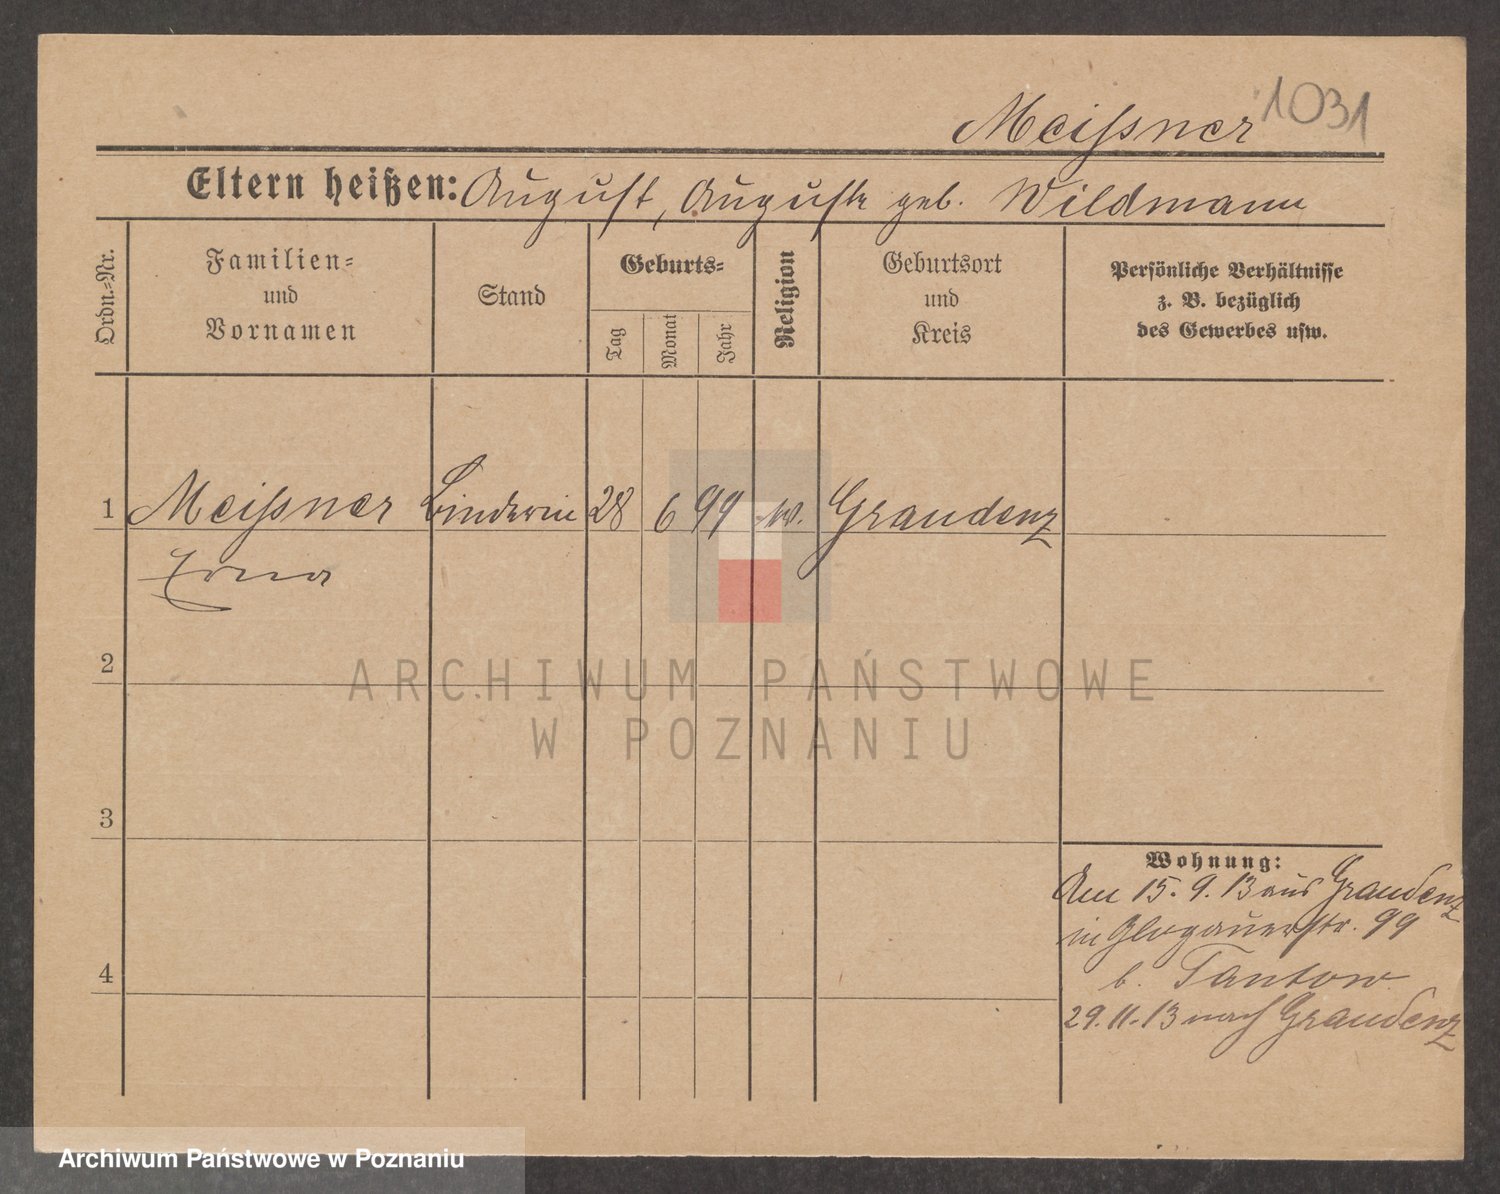 Meißner 1031
Eltern heißen: August, Auguste geb. Wildmann
Ordn.=Nr.
Familien=
und
Vornamen
Stand
Geburts=
Tag
Monat
Jahr
Religion
Geburtsort
und
Kreis
Persönliche Verhältnisse
z. B. bezüglich
des Gewerbes usw.
1 Meißner Binderin 28 6 99 Graudenz
Erna
2
3
4
Wohnung:
Am 15. 9. 13 aus Graudenz
in Glogauerstr. 99
b. Tantow
29. 11. 13 nach Graudenz
ARCHIWUM PAŃSTWOWE
W POZNANIU
Archiwum Państwowe w Poznaniu